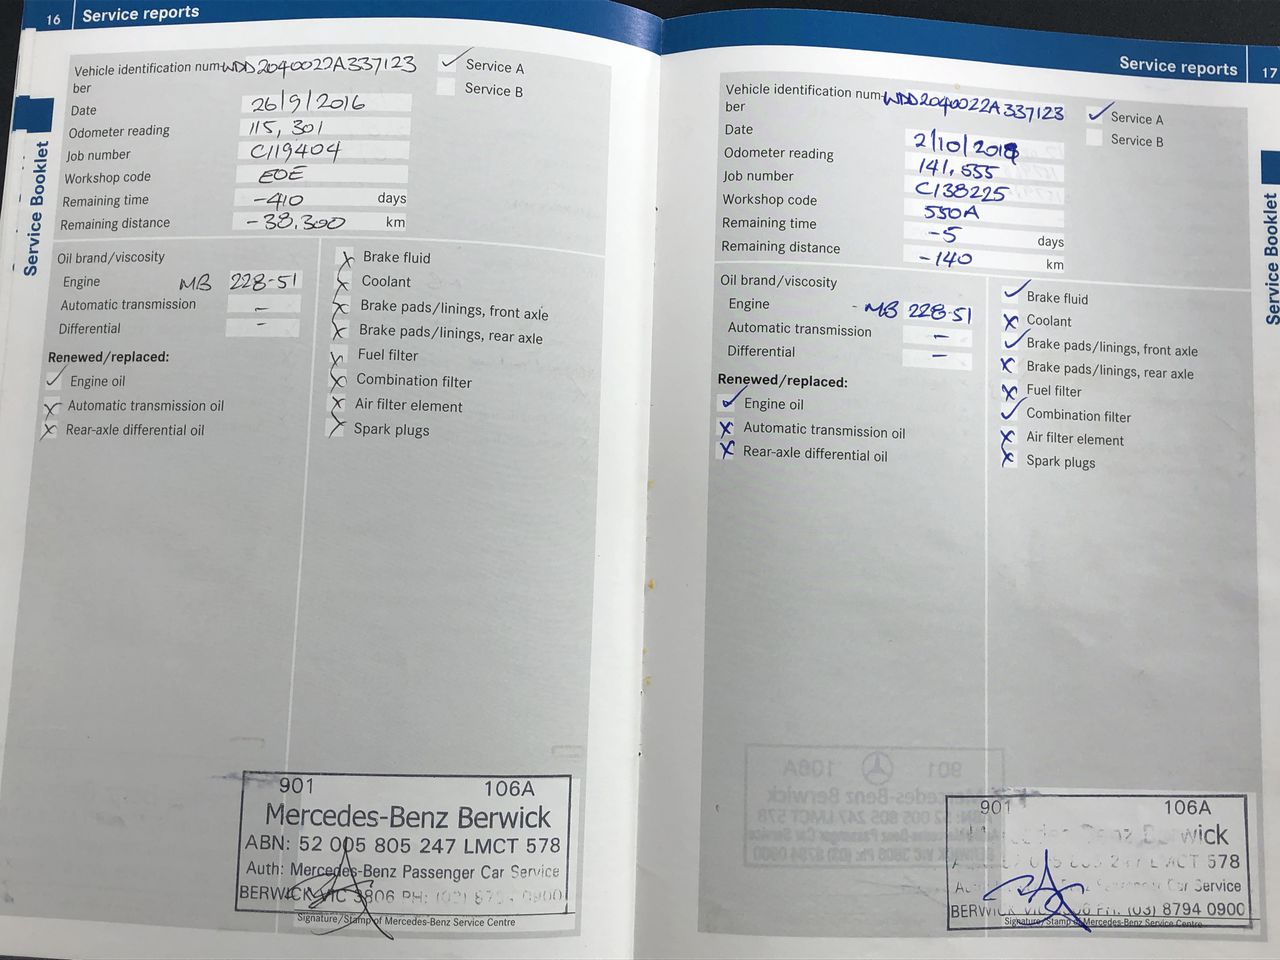 16 Service reports
Service Booklet
Vehicle identification num- WDD2040022A337123
ber
✓ Service A
Service B
Date 26/9/2016
Odometer reading 115,301
Job number C119404
Workshop code EOE
Remaining time -410 days
Remaining distance -38,300 km
Oil brand/viscosity
Engine MB 228-51
Automatic transmission -
Differential -
Renewed/replaced:
✓ Engine oil
x Automatic transmission oil
x Rear-axle differential oil
x Brake fluid
x Coolant
x Brake pads/linings, front axle
x Brake pads/linings, rear axle
x Fuel filter
x Combination filter
x Air filter element
x Spark plugs
901 106A
Mercedes-Benz Berwick
ABN: 52 005 805 247 LMCT 578
Auth: Mercedes-Benz Passenger Car Service
BERWICK VIC 3806 PH: (03) 8794 0900
Signature/Stamp of Mercedes-Benz Service Centre
Service reports 17
Service Booklet
Vehicle identification num- WDD2040022A337123
ber
✓ Service A
Service B
Date 2/10/2018
Odometer reading 141,555
Job number C138225
Workshop code 550A
Remaining time -5 days
Remaining distance -140 km
Oil brand/viscosity
Engine - MB 228-51
Automatic transmission -
Differential -
Renewed/replaced:
✓ Engine oil
x Automatic transmission oil
x Rear-axle differential oil
✓ Brake fluid
x Coolant
✓ Brake pads/linings, front axle
x Brake pads/linings, rear axle
x Fuel filter
✓ Combination filter
x Air filter element
x Spark plugs
901 106A
Benz Berwick
805 247 LMCT 578
Passenger Car Service
BERWICK VIC 3806 PH: (03) 8794 0900
Signature/Stamp of Mercedes-Benz Service Centre